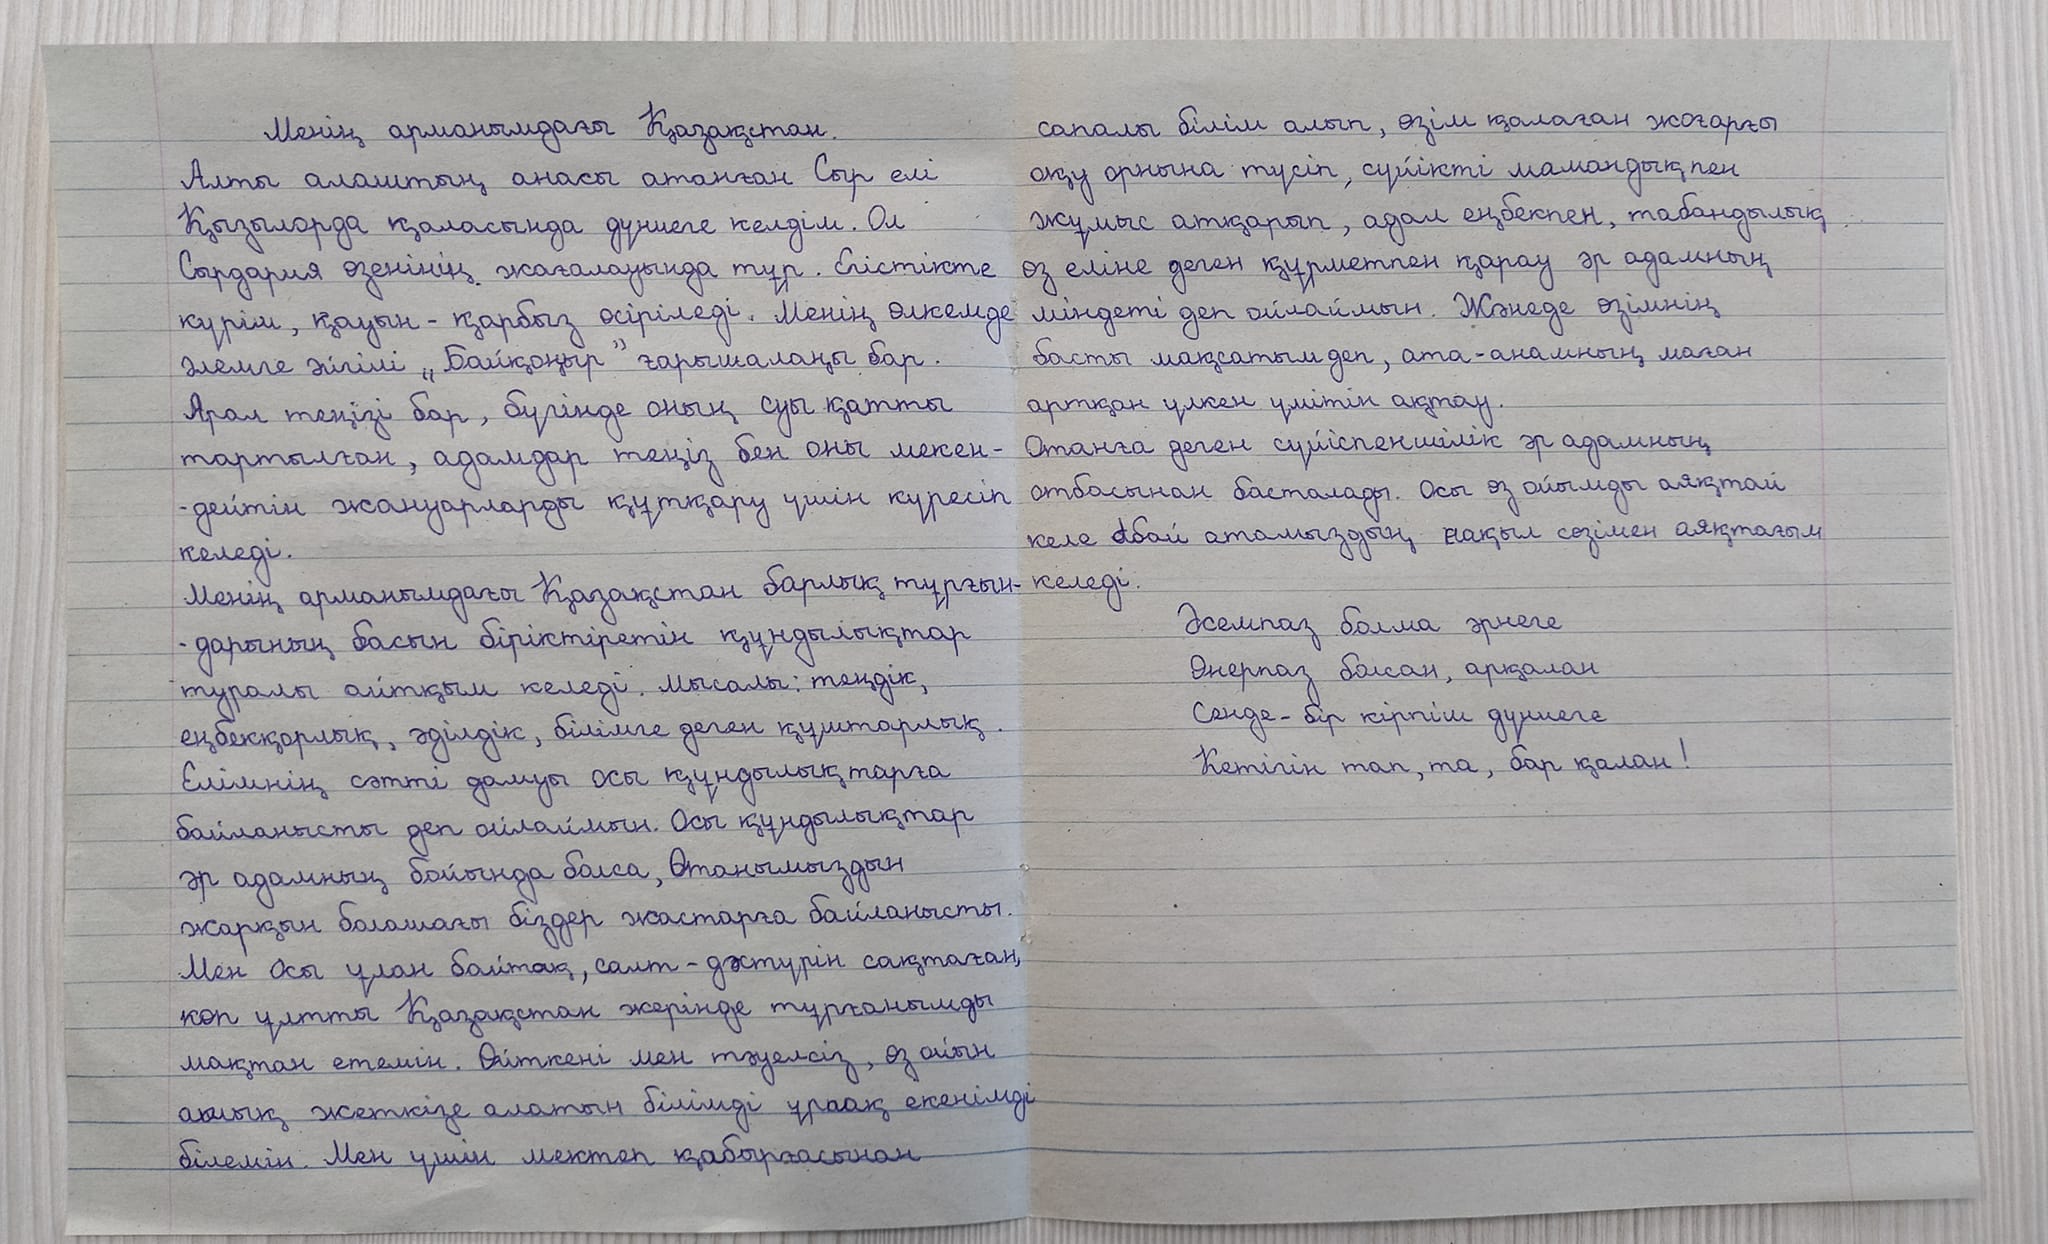 Менің арманымдағы Қазақстан.
Алты алаштың анасы атанған Сыр елі
Қызылорда қаласында дүниеге келдім. Ол
Сырдария өзенінің жағалауында тұр. Егістікте
күріш, қауын - қарбыз өсіріледі. Менің өлкемде
әлемге әйгілі „Байқоңыр” ғарышалаңы бар.
Арал теңізі бар, бүгінде оның суы қатты
тартылған, адамдар теңіз бен оны мекен-
-дейтін жануарларды құтқару үшін күресіп
келеді.
Менің арманымдағы Қазақстан барлық тұрғын-
-дарының басын біріктіретін құндылықтар
туралы айтқым келеді. Мысалы: теңдік,
еңбекқорлық, әділдік, білімге деген құштарлық.
Елімнің сәтті дамуы осы құндылықтарға
байланысты деп ойлаймын. Осы құндылықтар
әр адамның бойында болса, Отанымыздын
жарқын болашағы біздер жастарға байланысты.
Мен осы ұлан байтақ, салт - дәстүрін сақтаған,
көп ұлтты Қазақстан жерінде тұрғанымды
мақтан етемін. Өйткені мен тәуелсіз, өз ойын
ашық жеткізе алатын білімді ұрпақ екенімді
білемін. Мен үшін мектеп қабырғасынан
сапалы білім алып, өзім қалаған жоғарғы
оқу орнына түсіп, сүйікті мамандықпен
жұмыс атқарып, адал еңбекпен, табандылық
өз еліне деген құрметпен қарау әр адамның
міндеті деп ойлаймын. Жәнеде өзімнің
басты мақсатым деп, ата-анамның маған
артқан үлкен үмітін ақтау.
Отанға деген сүйіспеншілік әр адамның
отбасынан басталады. Осы өз ойымды аяқтай
келе Абай атамыздың нақыл сөзімен аяқтағым
келеді.
Әсемпаз болма әрнеге
Өнерпаз болсан, арқалан
Сенде - бір кірпіш дүниеге
Кетігін тап, та, бар қалан!